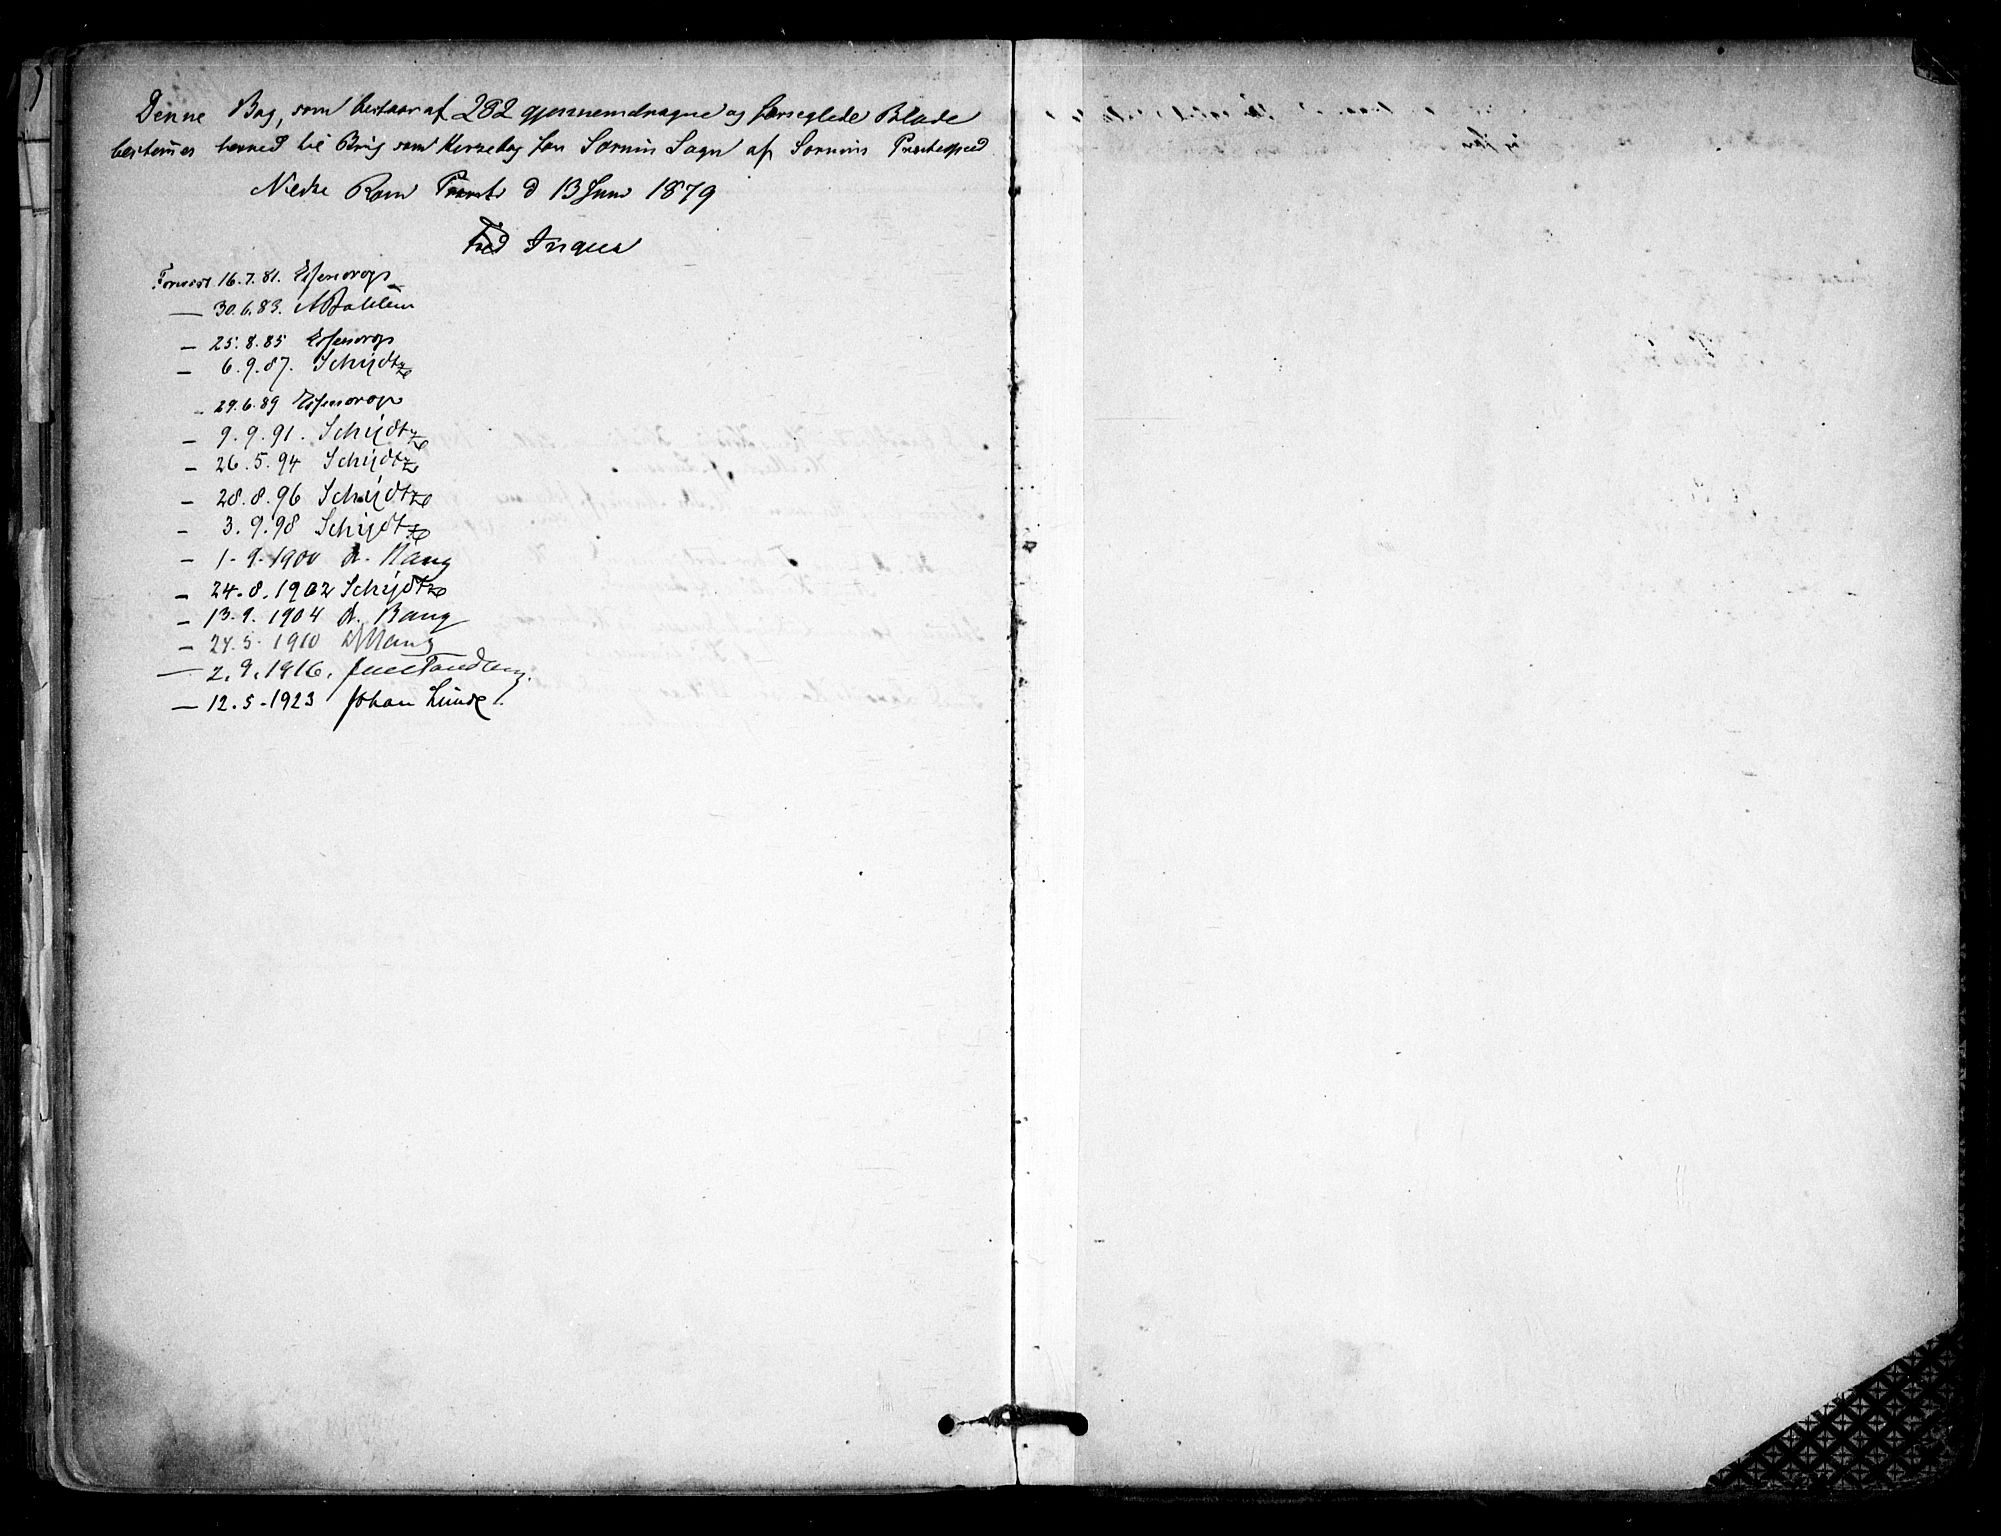 Denne Bog, som bestaar af 282 gjennemdragne og forseglede Blade
bestem̄es herved til Brug som Kirkebog for Sørum Sogn af Sørums Præstegjeld
Nedre Rom. Provsti d 13 Juni 1879
Fred Ingier
Forevist 16.7.81. Essendrop
— 30.6.83.
— 25.8.85 Essendrop
— 6.9.87. Schijøtz
— 29.6.89 Essendrop
— 9.9.91. Schijøtz
— 26.5.94 Schijøtz
— 28.8.96 Schijøtz
— 3.9.98 Schijøtz
— 1.9.1900 A. Bang
— 24.8.1902 Schijøtz
— 13.9.1904 A. Bang
— 27.5.1910 A Bang
— 2.9.1916. Jens Tandberg.
— 12.5-1923 Johan Lunde.